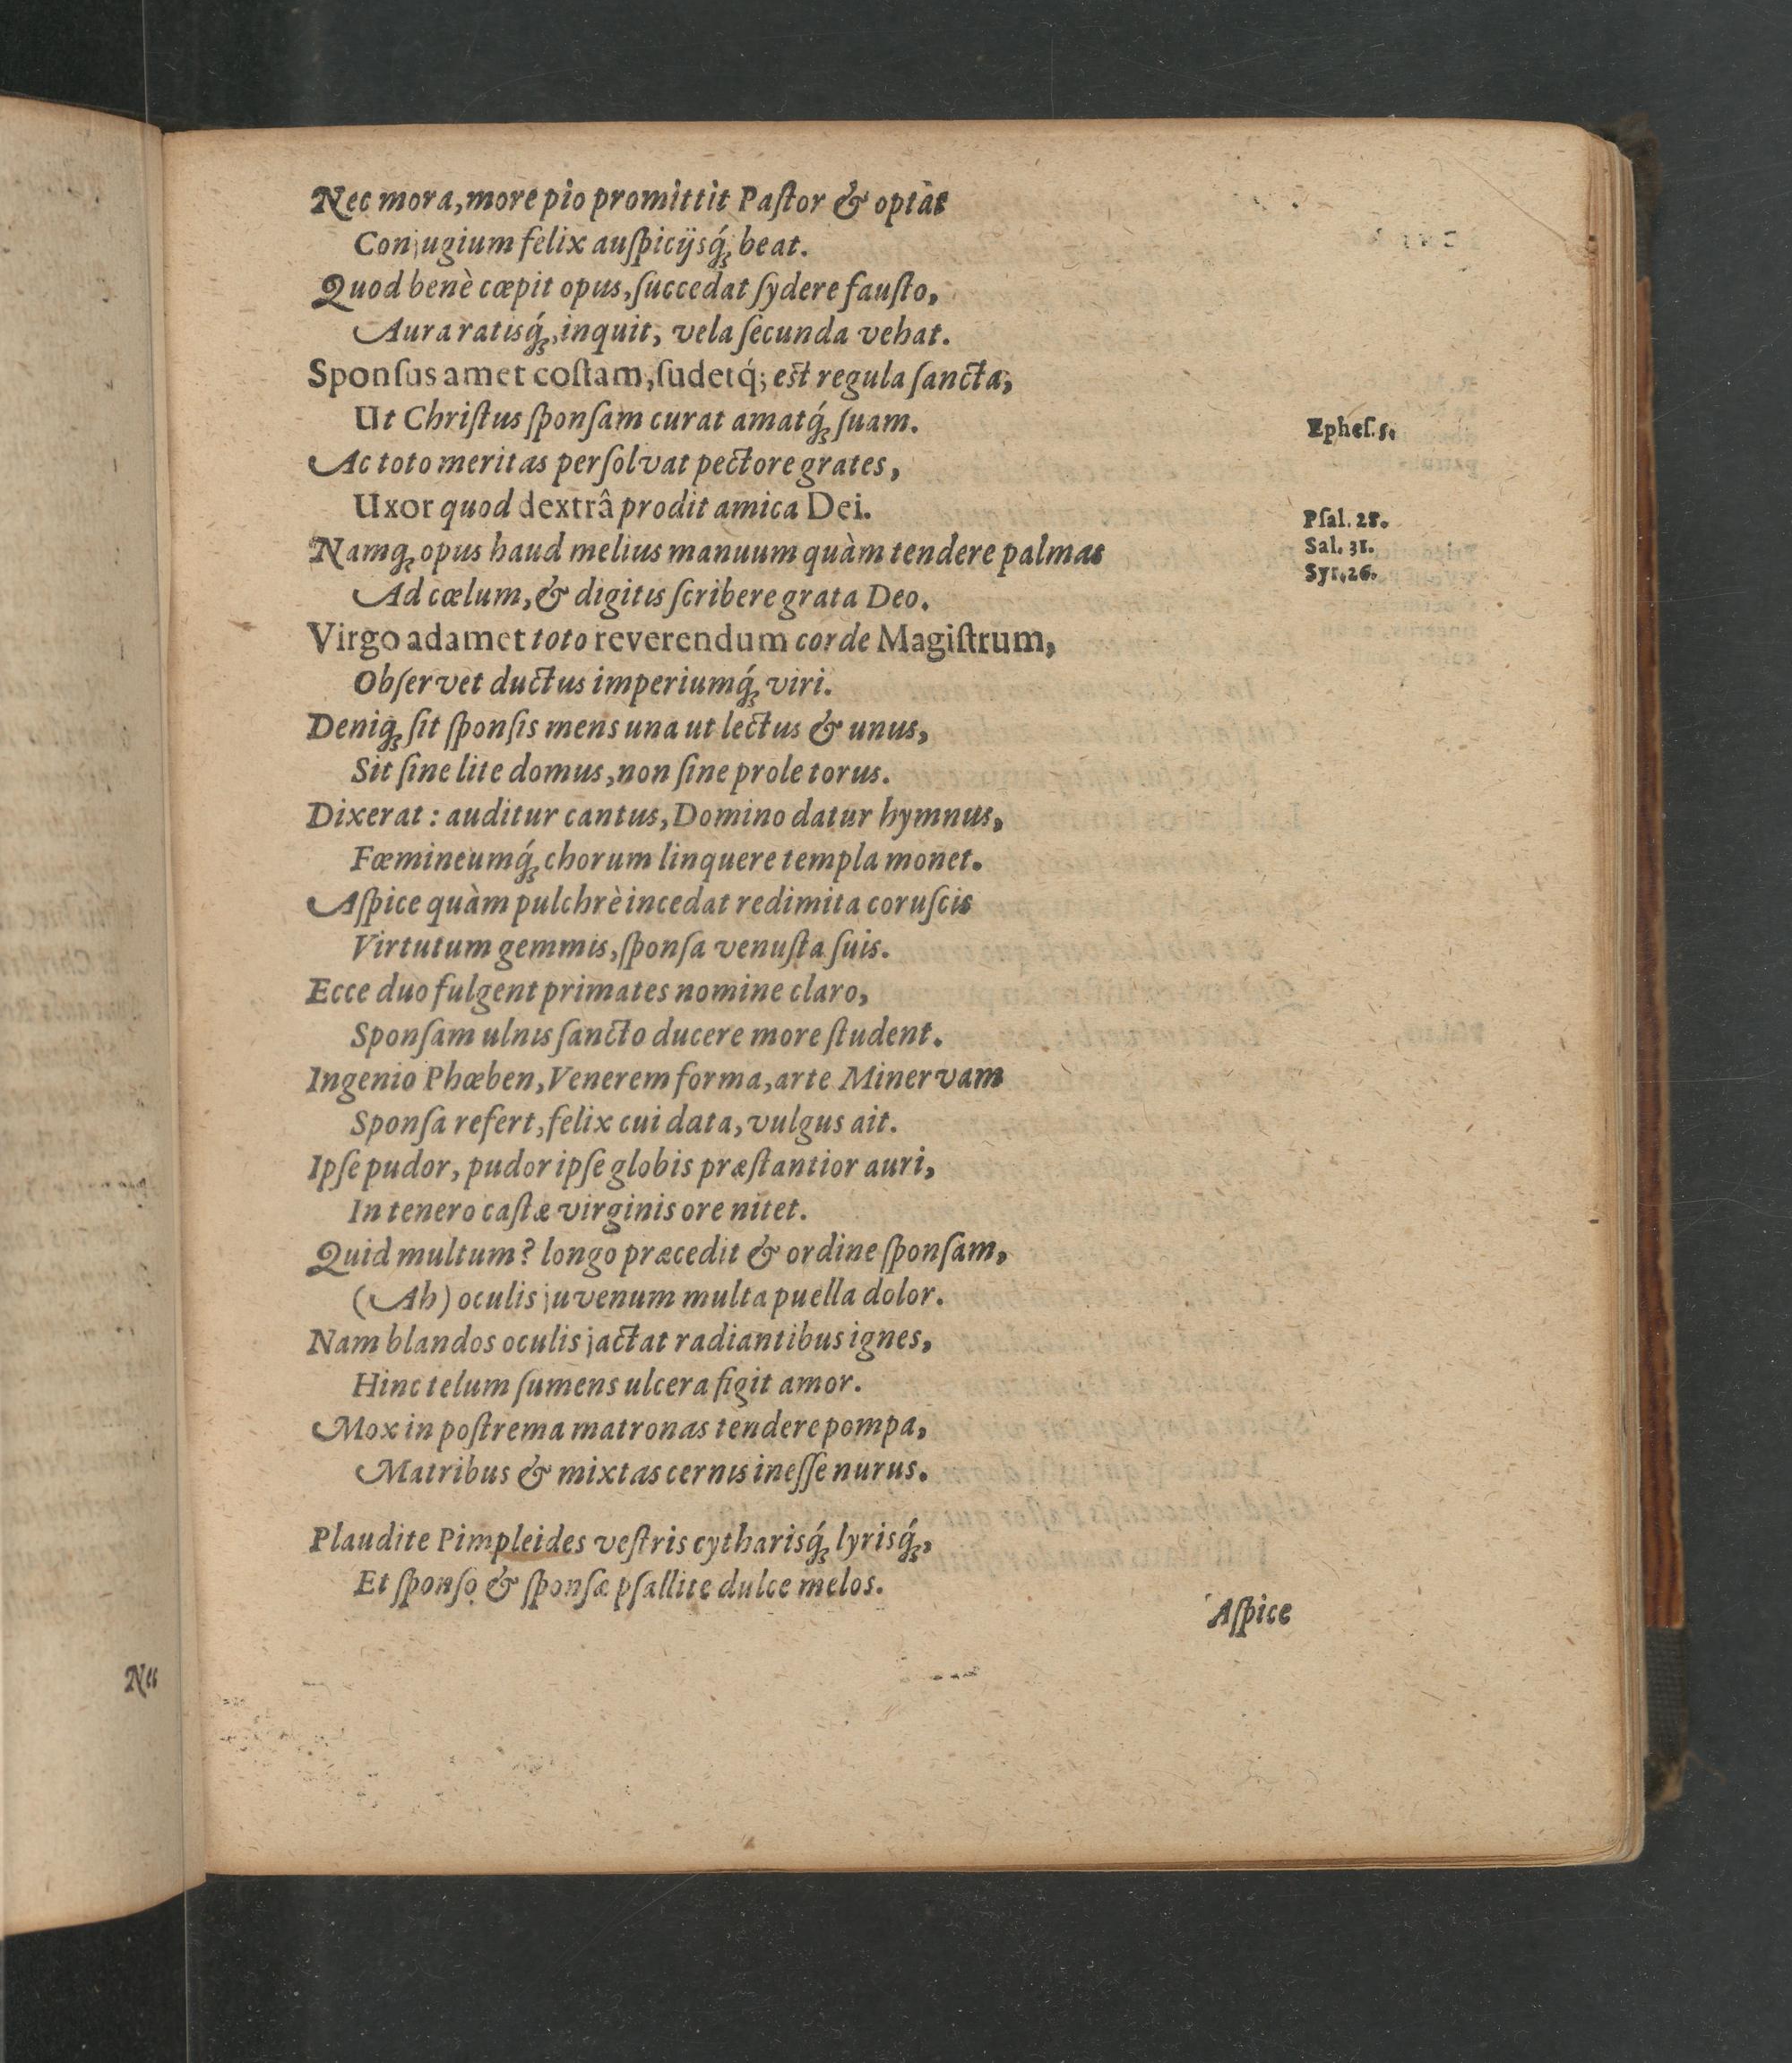 Nec mora, more pio promittit Paſtor & optat
Conjugium felix auſpicijsq́; beat.
Quod benè cœpit opus, ſuccedat ſydere fauſto,
Aura ratisq́;, inquit, vela ſecunda vehat.
Sponſus amet coſtam, ſudetq́; eſt regula ſancta,
Ut Chriſtus ſponſam curat amatq́; ſuam.
Epheſ. 5.
Ac toto meritas perſolvat pectore grates,
Uxor quod dextrâ prodit amica Dei.
Pſal. 28.
Namq; opus haud melius manuum quàm tendere palmas
Sal. 31.
Syr. 26.
Ad cœlum, & digitis ſcribere grata Deo.
Virgo adamet toto reverendum corde Magiſtrum,
Obſervet ductus imperiumq́; viri.
Deniq; ſit ſponſis mens una ut lectus & unus,
Sit ſine lite domus, non ſine prole torus.
Dixerat: auditur cantus, Domino datur hymnus,
Fœmineumq́; chorum linquere templa monet.
Aſpice quàm pulchrè incedat redimita coruſcis
Virtutum gemmis, ſponſa venuſta ſuis.
Ecce duo fulgent primates nomine claro,
Sponſam ulnis ſancto ducere more ſtudent.
Ingenio Phœben, Venerem forma, arte Minervam
Sponſa refert, felix cui data, vulgus ait.
Ipſe pudor, pudor ipſe globis præſtantior auri,
In tenero caſtæ virginis ore nitet.
Quid multum? longo præcedit & ordine ſponſam,
(Ah) oculis juvenum multa puella dolor.
Nam blandos oculis jactat radiantibus ignes,
Hinc telum ſumens ulcera figit amor.
Mox in poſtrema matronas tendere pompa,
Matribus & mixtas cernis ineſſe nurus.
Plaudite Pimpleides veſtris cytharisq́; lyrisq́;,
Et ſponſo & ſponſæ pſallite dulce melos.
Aſpice